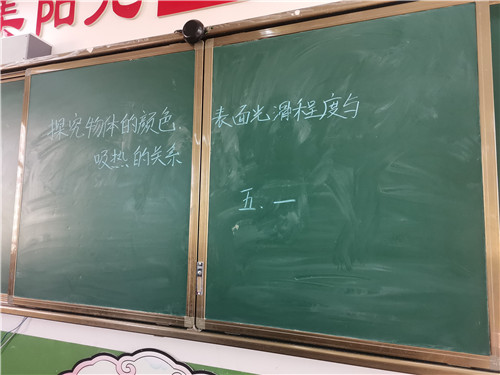 集阳光
探究物体的颜色 表面光滑程度与
吸热的关系
五.一